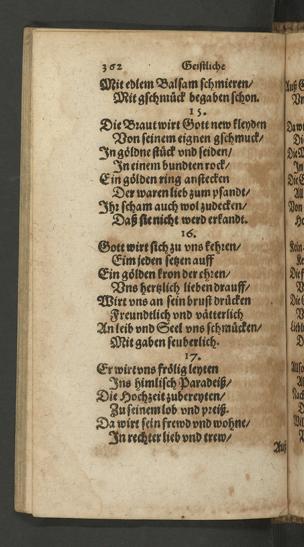 362 Geistliche
Mit edlem Balsam schmieren/
Mit gschmück begaben schon.
15.
Die Braut wirt Gott new kleyden
Von seinem eignen gschmuck/
In göldne stück vnd seiden/
In einem bunten rock/
Ein gölden ring anstecken
Der waren lieb zum pfandt/
Ihr scham auch wol zudecken/
Daß sie nicht werd erkandt.
16.
Gott wirt sich zu vns kehren/
Eim jeden setzen auff
Ein gölden kron der ehren/
Vns hertzlich lieben drauff/
Wirt vns an sein brust drücken
Freundtlich vnd vätterlich
An leib vnd Seel vns schmücken/
Mit gaben seuberlich.
17.
Er wirt vns frölig leyten
Ins himlisch Paradeiß/
Die Hochzeit zubereyten/
Zu seinem lob vnd preiß.
Da wirt sein frewd vnd wohne/
In rechter lieb vnd trew/
Auß